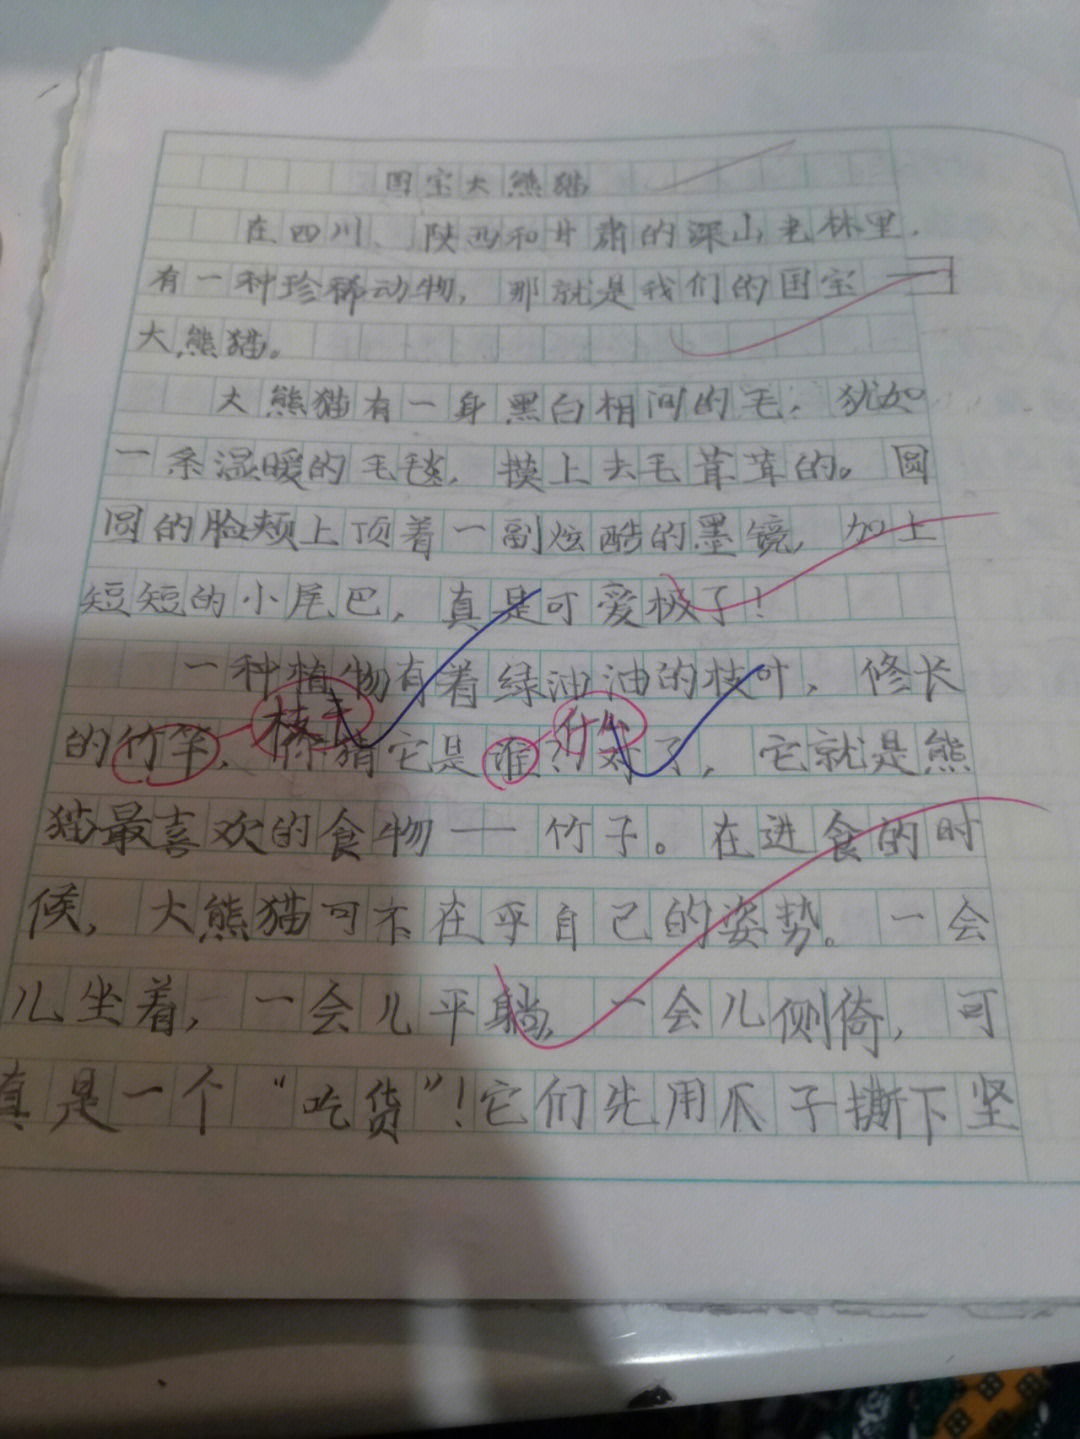 国宝大熊猫
在四川、陕西和甘肃的深山老林里,
有一种珍稀动物,那就是我们的国宝
大熊猫。
大熊猫有一身黑白相间的毛,犹如
一条湿暖的毛毯,摸上去毛茸茸的。圆
圆的脸颊上顶着一副炫酷的墨镜,加上
短短的小尾巴,真是可爱极了!
一种植物有着绿油油的枝叶,修长
枝干 什么
的竹竿,你猜它是谁?对了,它就是熊
猫最喜欢的食物——竹子。在进食的时
候,大熊猫可不在乎自己的姿势。一会
儿坐着,一会儿平躺,一会儿侧倚,可
真是一个“吃货”!它们先用爪子撕下坚